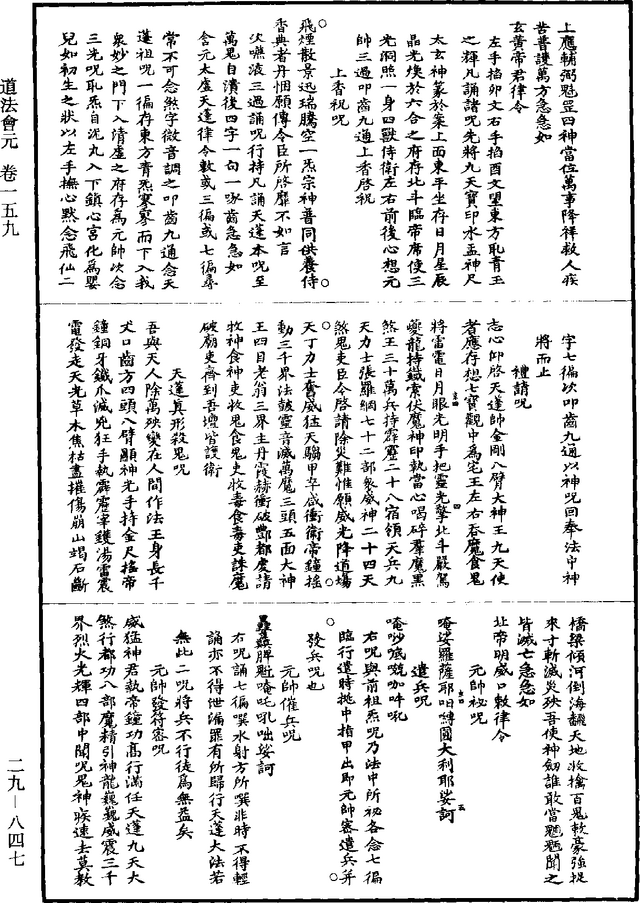 道法會元　卷一五九
上應輔弼魁罡四神當位萬事降祥救人疾
苦普護萬方急急如
玄黃帝君律令
左手掐卯文右手掐酉文望東方恥青玉
之輝凡誦諸呪先將九天寶印水盂神尺
太玄神篆於案上面東平坐存日月星辰
晶光煥於六合之府存北斗臨帝席使三
光洞照一身四獸侍衛左右前後心想元
帥三過叩齒九通上香啓祝
上香祝呪
飛煙散景迅瑞騰空一炁宗神普同供養侍
香典者丹悃願傳令臣所啓靡不如言
次噀液三過誦呪行持凡誦天蓬本呪至
萬鬼自潰後四字一句一啄齒急急如
含元太虛天蓬律令數或三徧或七徧尋
常不可念煞字微音調之叩齒九通念天
蓬祖呪一徧存東方青炁寥寥而下入我
泉妙之門下入清虛之府存為元帥次念
三光呪恥炁自泥丸入下鎮心宮化為嬰
兒如初生之狀以左手撫心默念飛仙二
字七徧次叩齒九通以神呪回奉法中神
將而止
禮請呪
志心仰啓天蓬帥金剛八臂大神王九天使
者應存想七寶觀中為宅王左右吞魔食鬼
將雷電日月眼光明手把靈光擎北斗嚴駕
夔龍持鐵索伏魔神印執當心喝碎羣魔黑
煞王三十萬兵持霹靂二十八宿領天兵九
天力士張羅網七十二部衆威神二十四天
煞鬼吏臣今啓請除災難惟願威光降道場
天丁力士奮威猛天騶甲卒威衝衛帝鐘搖
動三千界法鼓靈音滅萬魔三頭五面大神
王四目老翁三界主丹霞赫衝破酆都虔請
牧神食神吏牧鬼食鬼吏收毒食毒吏誅魔
破廟吏齊到吾壇皆護衛
天蓬眞形殺鬼呪
吾與天人除萬殃變在人間作法王身長千
丈口齒方四頭八臂顯神光手持金尺搖帝
鐘銅牙鐵爪滅兇狂手執霹靂宰鑊湯雷震
電發走天光草木焦枯盡摧傷崩山竭石斷
橋梁傾河倒海飜天地收擒百鬼敕豪強捉
來寸斬滅災殃吾使神劒誰敢當魍魎聞之
皆滅亡急急如
北帝明威口敕律令
元帥祕呪
唵娑羅薩耶呬縛圓大利耶娑訶
遣兵呪
唵吵唬㘑咖吽吼
右呪與前祖炁呪乃法中所祕各念七徧
臨行遣時挑中指甲出即元帥審遣兵并
發兵呪也
元帥催兵呪
脾魁唵吒吼咄娑訶
右呪誦七徧噀水射方所噀非時不得輕
誦亦不得泄漏罪有所歸行天蓬大法若
無此二呪將兵不行徒為無益矣
元帥發符密呪
威猛神君執帝鐘功高行滿任天蓬九天大
煞行都功八部魔精引神龍巍巍威震三千
界烈火光輝四部中聞呪鬼神疾速去莫教
二九—八四七